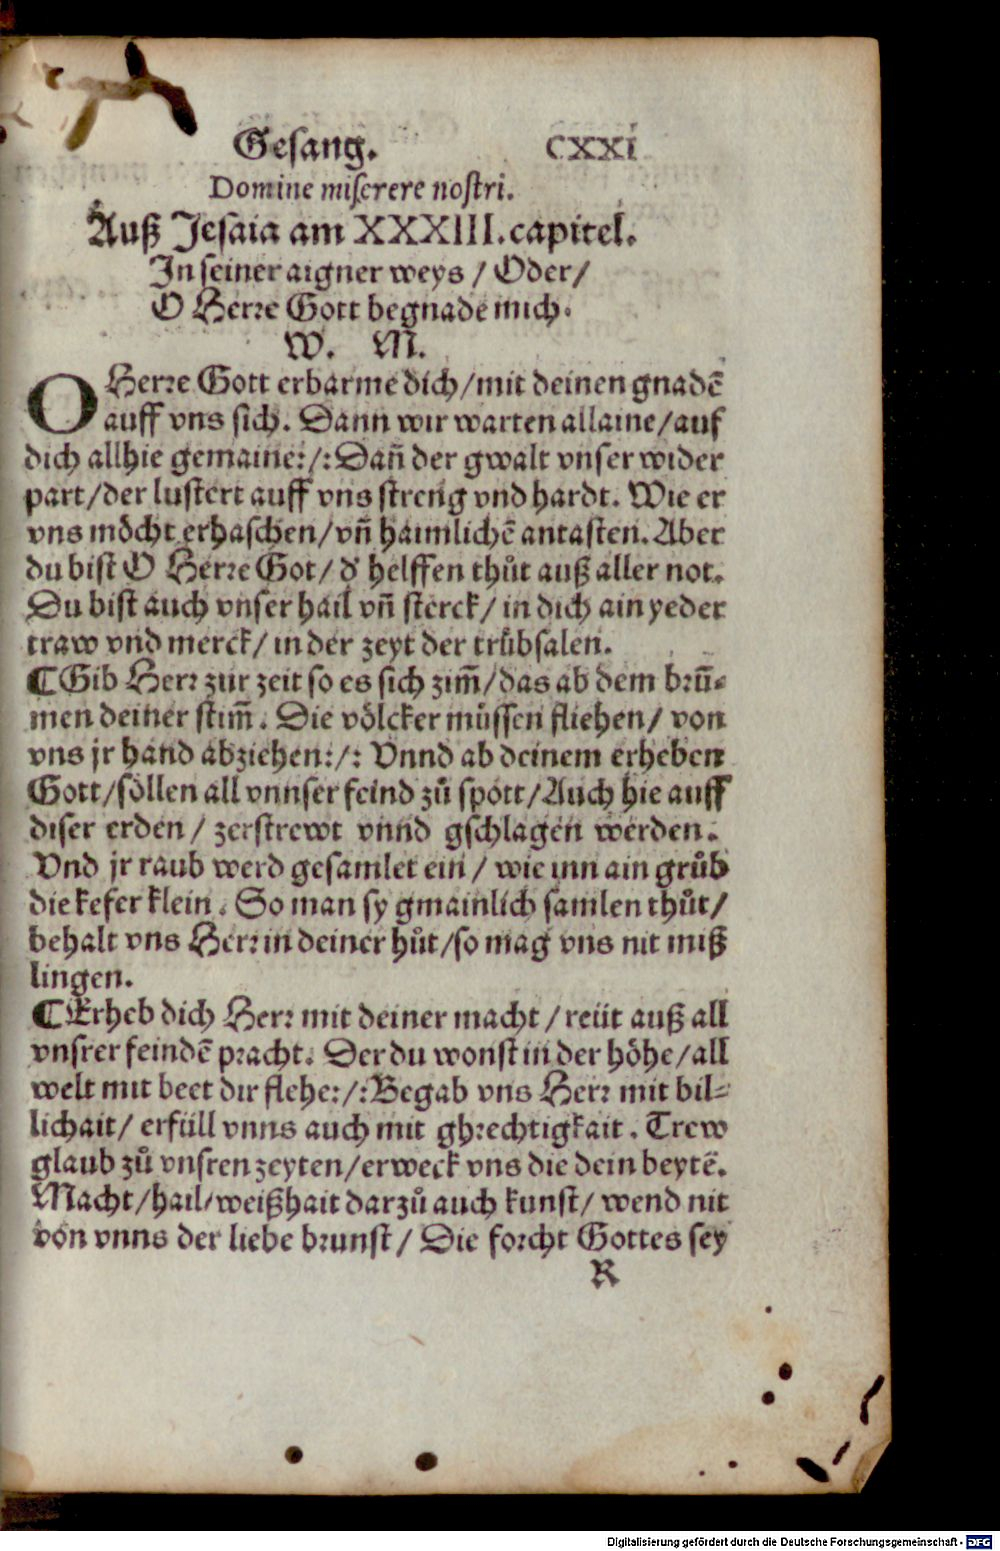 Gesang. CXXI
Domine miserere nostri.
Auß Jesaia am XXXIII. capitel.
In seiner aigner weys / Oder /
O Herre Gott begnade mich.
W. M.
O Herre Gott erbarme dich / mit deinen gnadē
auff vns sich. Dann wir warten allaine / auf
dich allhie gemaine:/: Dañ der gwalt vnser wider
part / der lustert auff vns streng vnd hardt. Wie er
vns möcht erhaschen / vñ haimlichē antasten. Aber
du bist O Herre Got / d' helffen thůt auß aller not.
Du bist auch vnser hail vñ sterck / in dich ain yeder
traw vnd merck / in der zeyt der trübsalen.
¶ Gib Herr zur zeit so es sich zim̃ / das ab dem brũ⸗
men deiner stim̃. Die völcker müssen fliehen / von
vns jr hand abziehen:/: Vnnd ab deinem erheben
Gott / söllen all vnnser feind zů spott / Auch hie auff
diser erden / zerstrewt vnnd gschlagen werden.
Vnd jr raub werd gesamlet ein / wie inn ain grůb
die kefer klein. So man sy gmainlich samlen thůt /
behalt vns Herr in deiner hůt / so mag vns nit miß
lingen.
¶ Erheb dich Herr mit deiner macht / reüt auß all
vnsrer feindē pracht. Der du wonst in der höhe / all
welt mit beet dir flehe:/: Begab vns Herr mit bil⸗
lichait / erfüll vnns auch mit ghrechtigkait. Trew
glaub zů vnsren zeyten / erweck vns die dein beytē.
Macht / hail / weißhait darzů auch kunst / wend nit
von vnns der liebe brunst / Die forcht Gottes sey
R
Digitalisierung gefördert durch die Deutsche Forschungsgemeinschaft - DFG